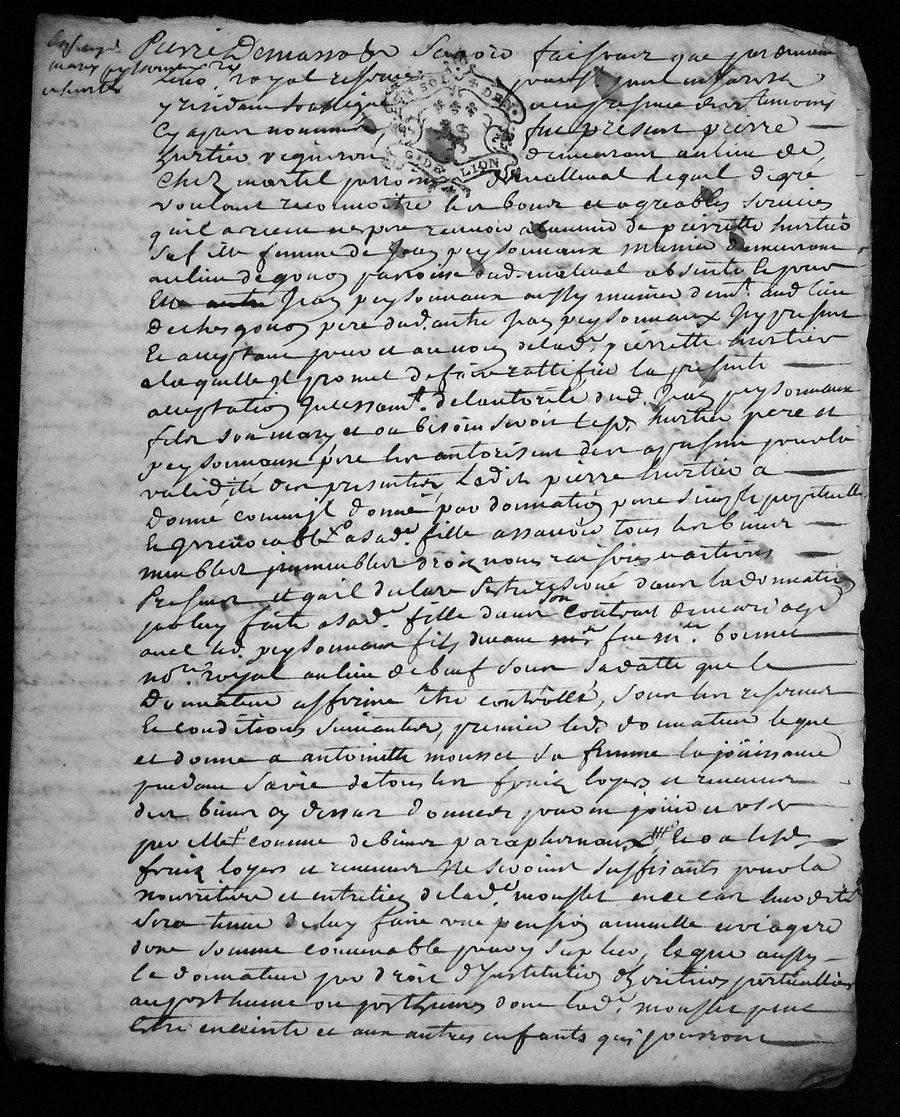 Pierre Demasso
faisons que par devant
royal reservé
y residant soubsigné
en presence des temoins
cy apres nommés fut present pierre
hurtier vigneron demeurant au lieu de
chez martel parroisse de malleval lequel de gré
voulant reconnoitre les bons et agreables services
qu'il a receu et espere recevoir a l'avenir de pierrette hurtier
sa fille femme de Jean peysonneaux munier demeurant
au lieu de gouon parroisse dud. maleval absente le pour
Elle Jean peysonneaux aussy munier demt. aud. lieu
de ches gouon pere dud. autre Jean peysonneaux Icy present
Et acceptant pour et au nom de lade. pierrette hurtier
a laquelle Il promet de faire rattifier la presente
acceptation de l'autorité dud. Jean peysonneaux
fils son mary et ou besoin seroit lesds. hurtier pere et
peysonneaux pere les autorisent des a presant pour la
validité des presentes, Ledit pierre hurtier a
donné comme Il donne par donnation pure simple perpetuelle
Et Irrevocable a sade. fille assavoir tous les biens
meubles immeubles droits noms raisons et actions
presents et qu'il declare s'etre reservé dans la donnation
par luy faite a sade. fille dans son contrat de mariage
avec led. peysonneaux fils devant feu me. bonnet
nore. royal au lieu de bœuf sous sa datte que le
Donnateur affirme etre contrôllé, sous les reserves
Et conditions suivantes, premier led. donnateur legue
et donne a antoinette mousset sa femme la joüissance
pendant sa vie de tous les fruits loyers et revenus
des biens cy dessus donnés pour en joüir et user
par elle comme de biens paraphernaux et ou lesds.
fruits loyers et revenus ne seroint suffisants pour la
nourriture et entretien de lade. mousset en ce cas
sera tenue de luy faire une pension annuelle et viagere
d'une somme convenable pour y supleer, legue aussy
le donnateur par droit d'Institution d'heritiers particulliers
au posthume ou posthumes dont lade. mousset peut
Estre enceinte et aux autres enfants qui pourront
GEN. DE LION